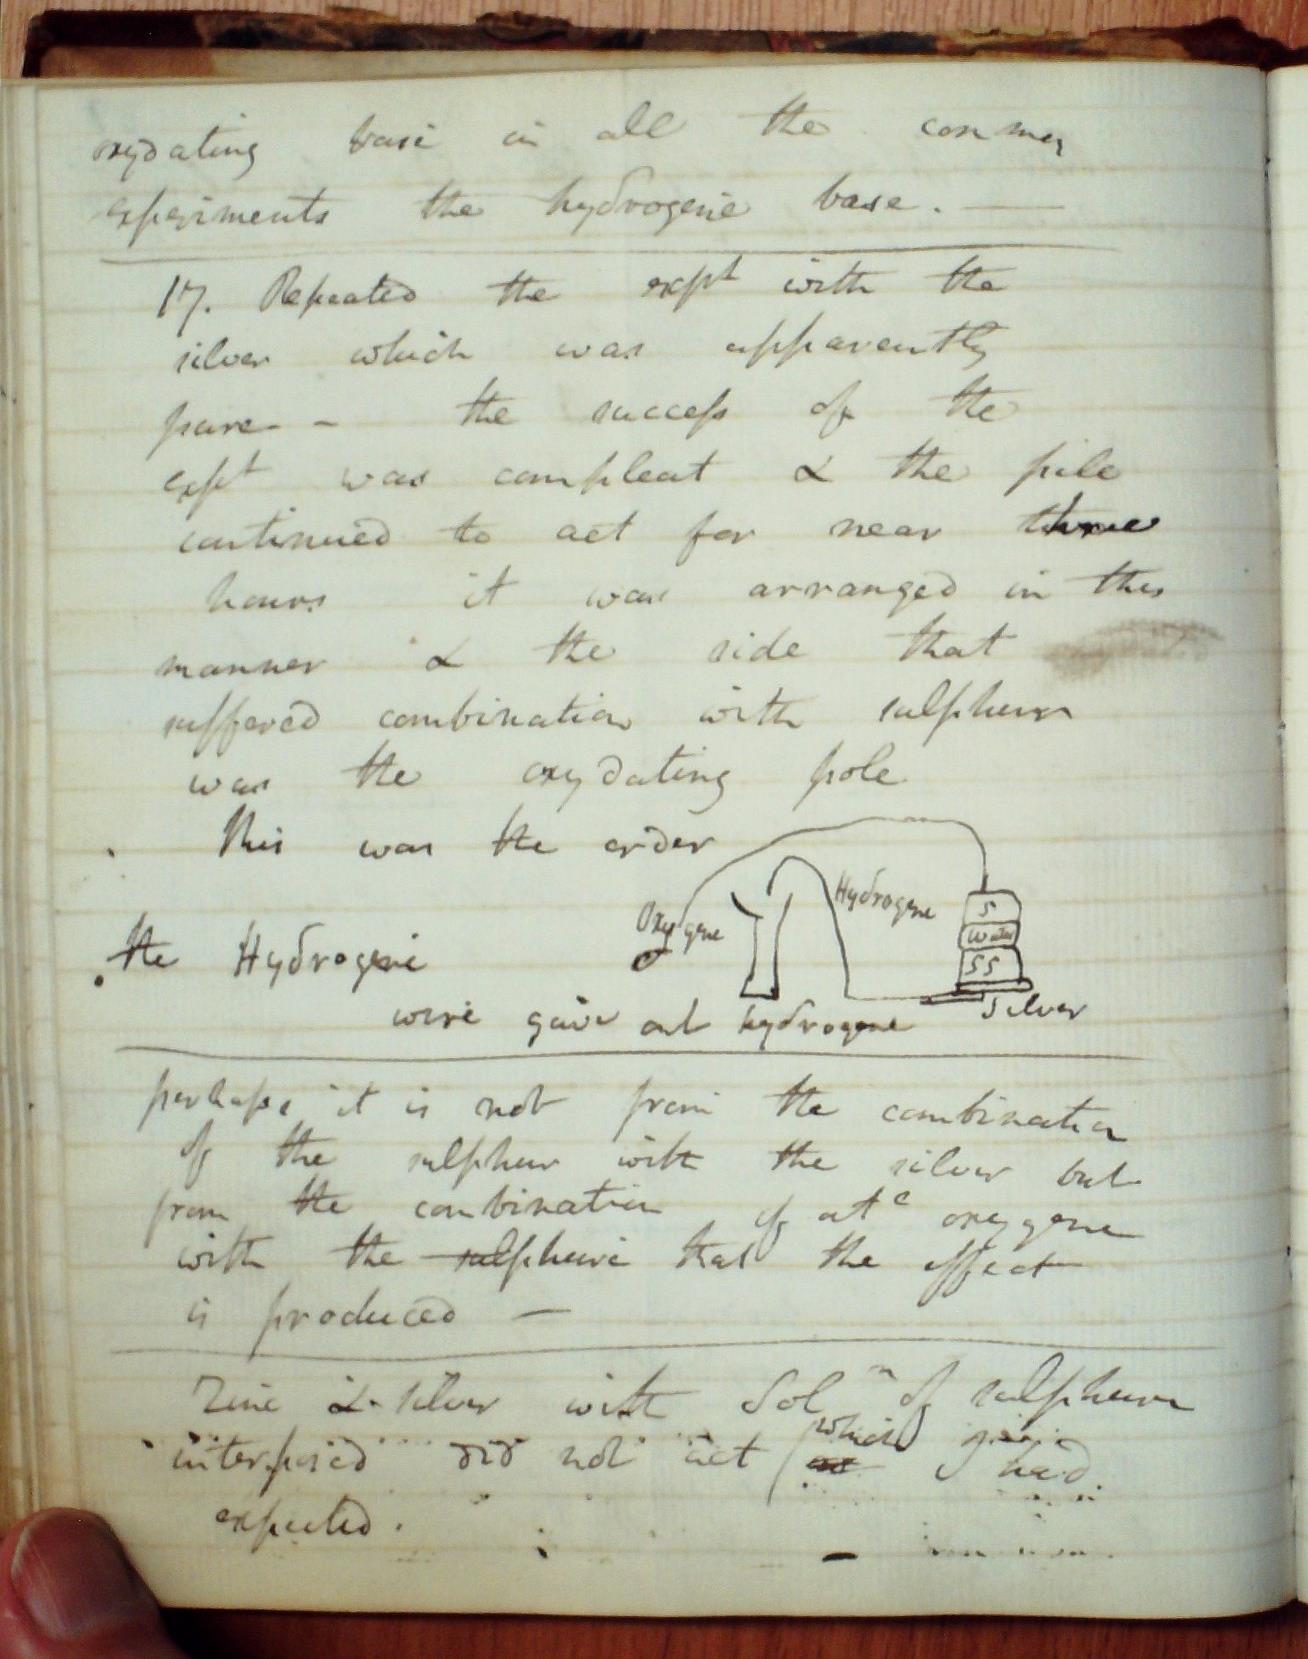 oxydating base in all the common
experiments the hydrogene base. —
17. Repeated the expt with the
silver which was apparently
pure – the success of the
expt was compleat & the pile
continued to act for near three
hours it was arranged in this
manner & the side that
suffered combination with sulphure
was the oxydating pole
This was the order
Oxygene
Hydrogene
S
Water
SS
Silver
the Hydrogene
wire gave out hydrogene
perhaps it is not from the combination
of the sulphur with the silver but
from the combination of atc oxygene
with the sulphure that the effect
is produced —
Zinc & silver with Soln of sulphure
interposed did not act (which I had
expected.